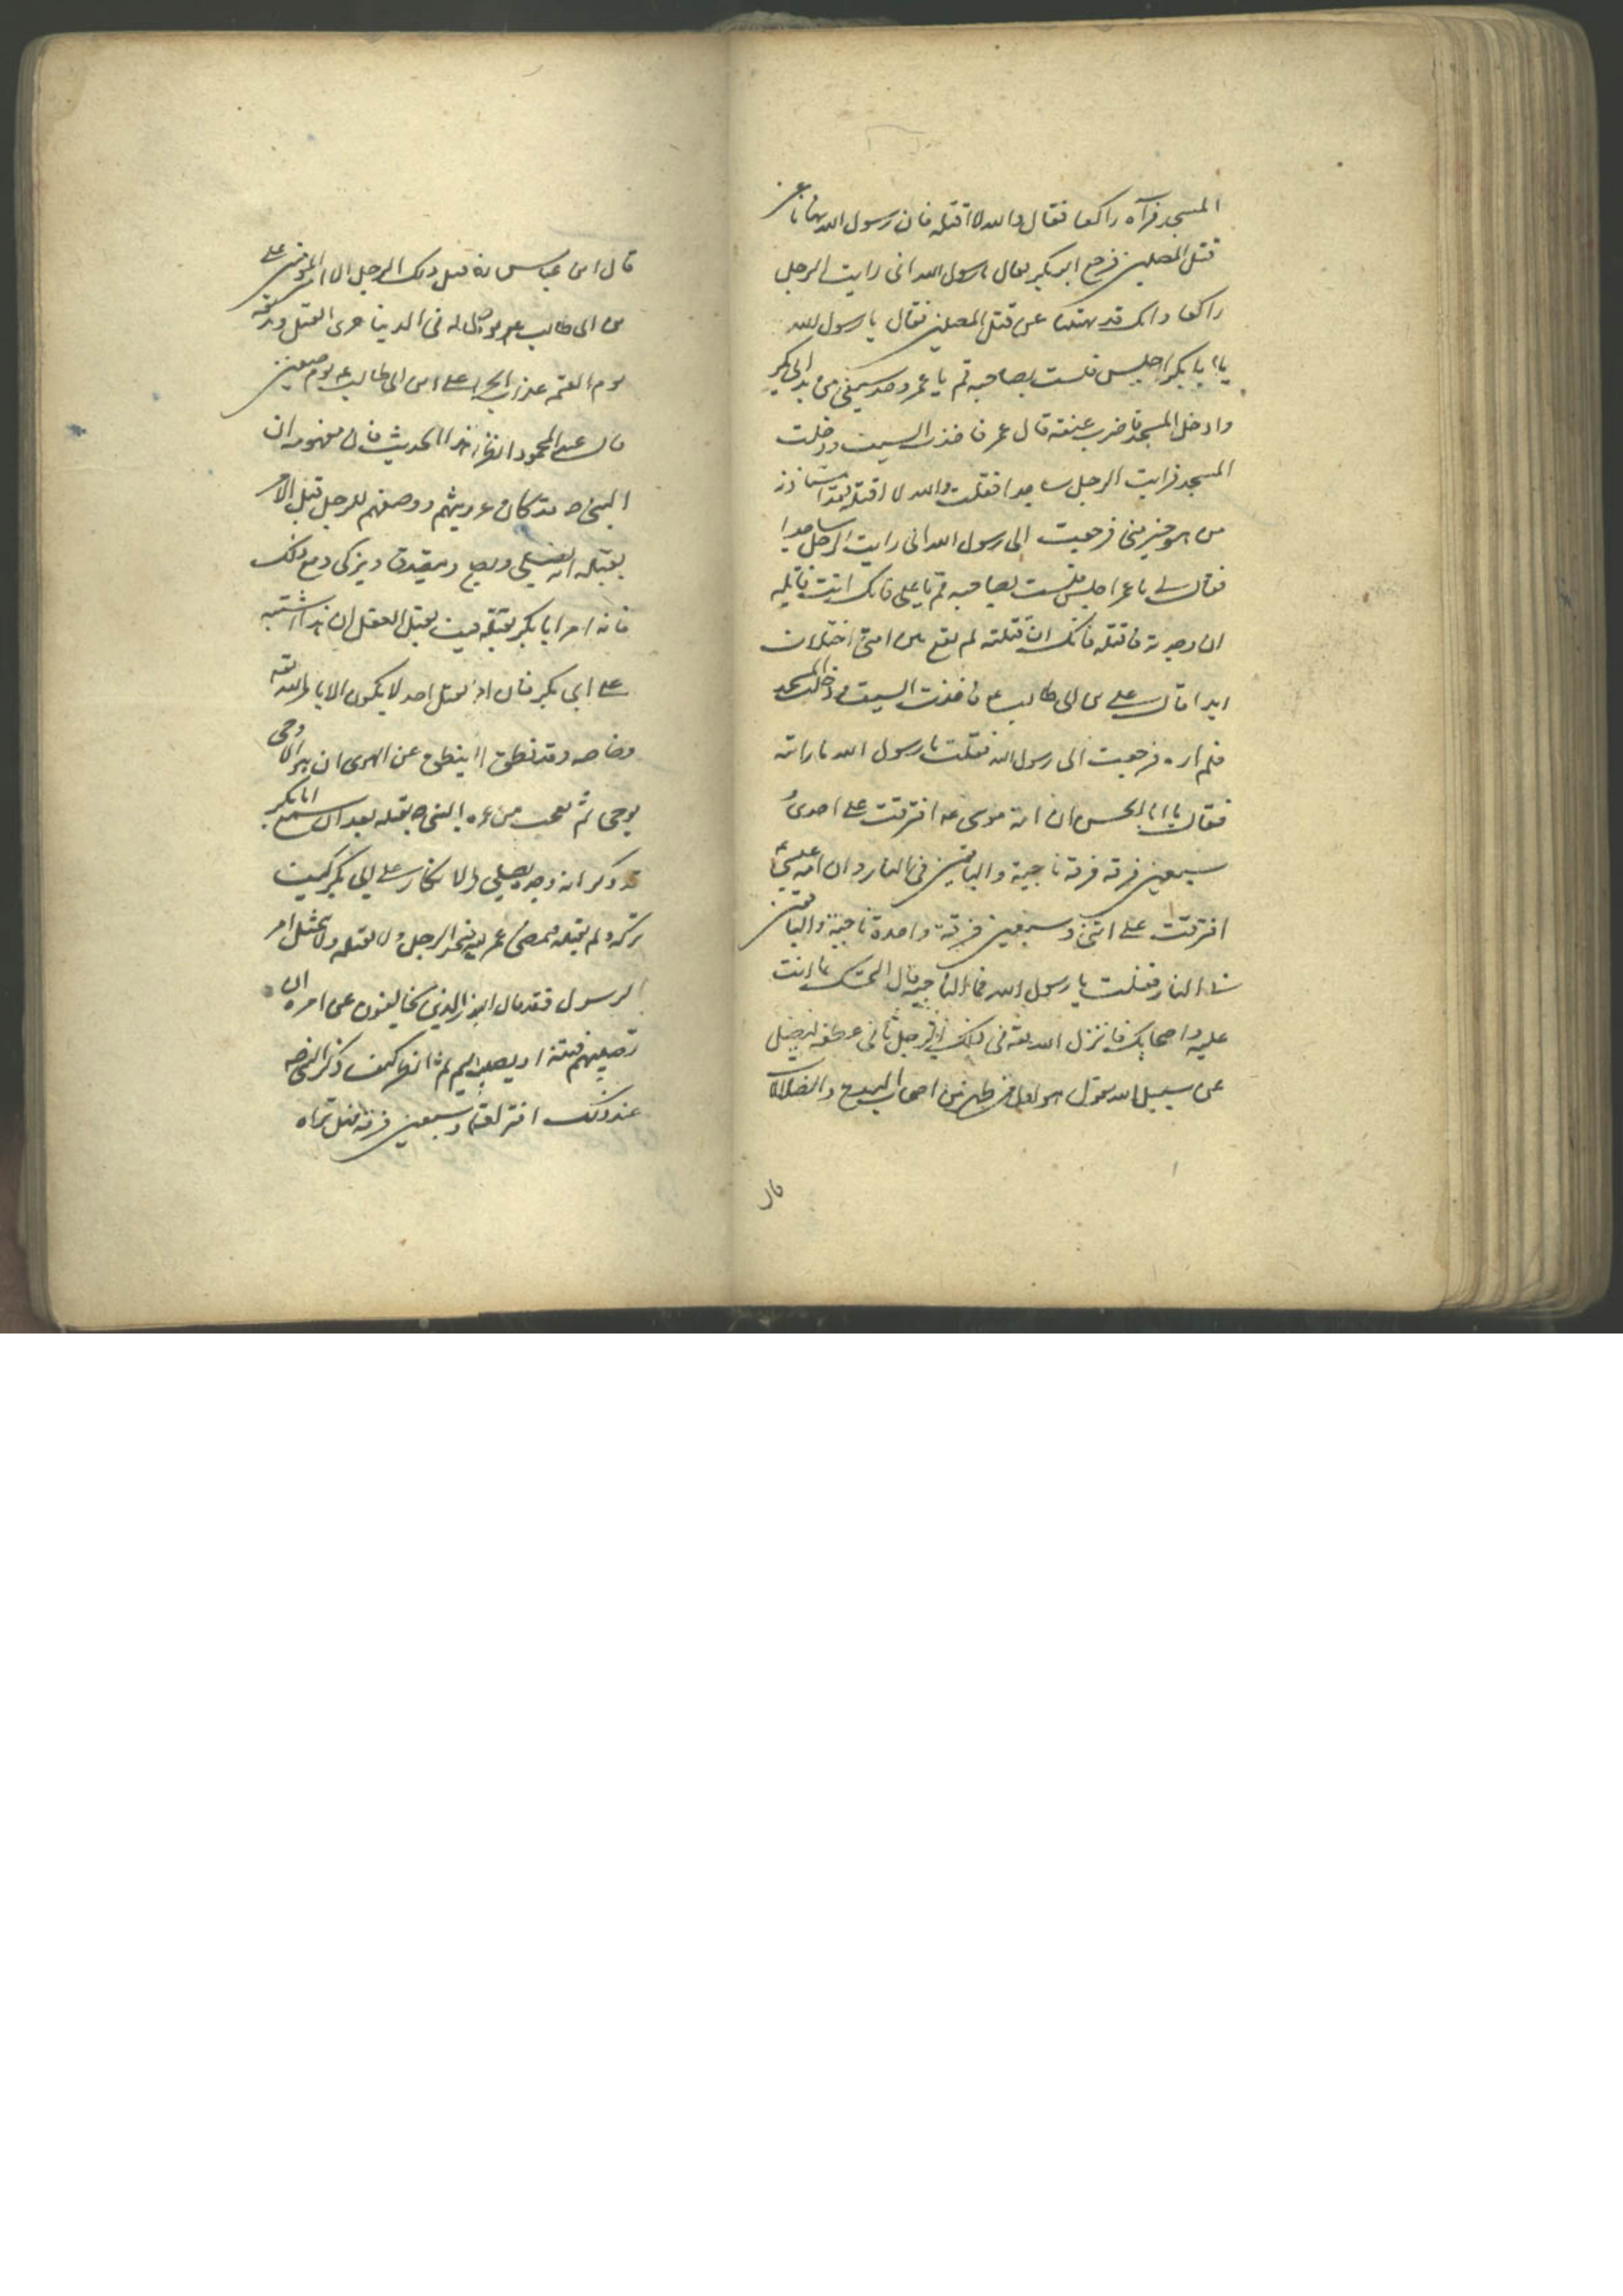 المسجد فرآه راكعا فقال والله لا اقتله فان رسول الله نهانا عن
قتل المصلين فرجع ابو بكر فقال يا رسول الله انى رايت الرجل
راكعا وانك قد نهيتنا عن قتل المصلين فقال يا رسول الله
يا ابا بكر اجلس فلست بصاحبه قم يا عمر وخذ سيفى من يد ابى بكر
وادخل المسجد فاضرب عنقه قال عمر فاخذت السيف ودخلت
المسجد فرايت الرجل ساجدا فقلت والله لا اقتله فقد استاذن
من هو خير منى فرجعت الى رسول الله انى رايت الرجل ساجدا
فقال لى يا عمر اجلس فلست بصاحبه قم يا على فانك انت قاتله
ان وجدته فاقتله فانك ان قتلته لم يقع بين امتى اختلاف
ابدا قال على بن ابى طالب ع فاخذت السيف ودخلت المسجد
فلم اره فرجعت الى رسول الله فقلت يا رسول الله ما رايته
فقال يا ابا الحسن ان امة موسى عه افترقت على احدى
سبعين فرقة فرقة ناجية والباقين فى النار وان امة عيسى
افترقت على اثنى وسبعين فرقة واحدة ناجية والباقين
فى النار فقلت يا رسول الله فما الناجية قال المتمسك بما انت
عليه واصحابك فانزل الله تعه فى ذلك الرجل ثانى عطفه ليضل
عن سبيل الله يقول هو اول من ظهر من اصحاب البدع والضلالات
قال
قال ابن عباس ما قتل ذلك الرجل الا امير المؤمنين على
بن ابى طالب يوم صفين له فى الدنيا خزى القتل ونذيقه
يوم القيمة عذاب الحريق على ابن ابى طالب عه يوم صفين
قال عبد المحمود انظر هذا الحديث فان مفهومه ان
النبى ص قد كان عرفهم ووصفهم للرجل قبل الامر
بقتله انه يصلى ويصوم ويتصدق ويزكى ومع ذلك
فانه امر ابا بكر بقتله فهل يقبل العقل ان هذا اشتبه
على ابى بكر فان امر بقتل احد لا يكون الا بامر الله تعه
وخاصه وقد نطق ما ينطق عن الهوى ان هو الا وحى
يوحى ثم تعجب من امره النبى ص بقتله بعد ان سمع ابا بكر
قد ذكر انه وجده يصلى والانكار على ابى بكر كيف
تركه ولم يقتله فمضى عمر ليجد الرجل ولا يقتله ولا يمتثل امر
الرسول فقد قال فليحذر الذين يخالفون عن امره ان
تصيبهم فتنة او يصيبهم عذاب اليم ثم انظر كيف ذكر النبى ص
عند ذلك افتراق امته وسبعين فرقة فهل تراه